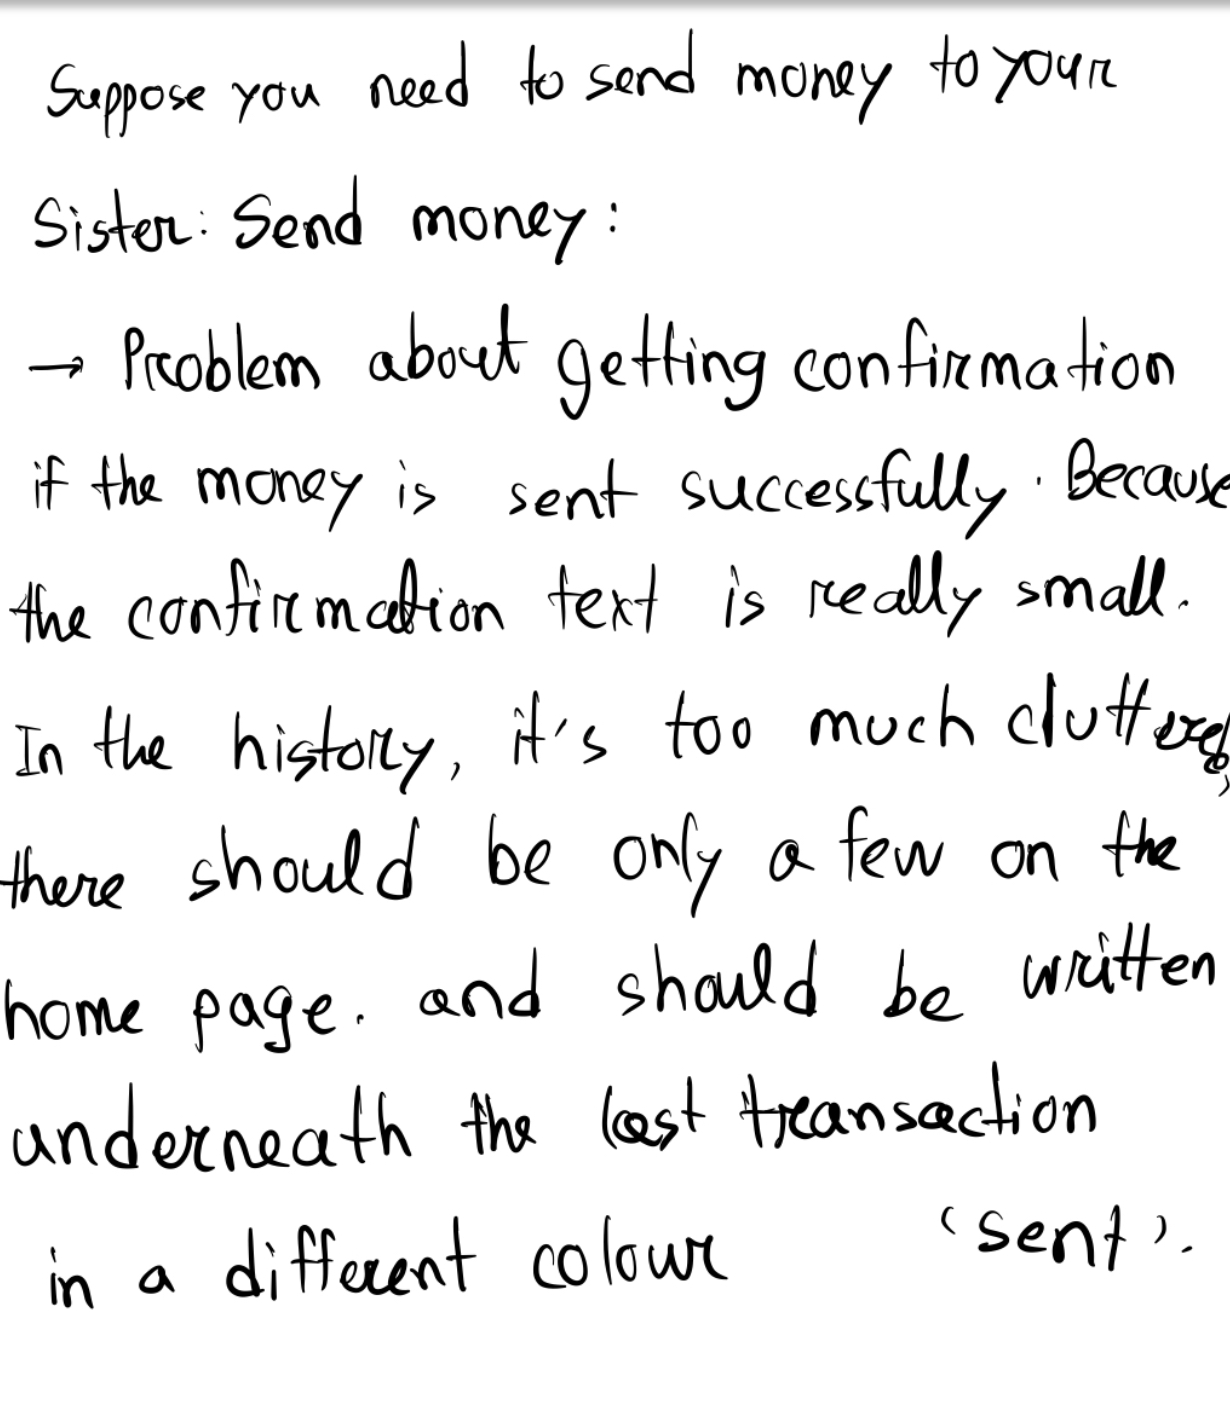 Suppose you need to send money to your
Sister: Send money:
→ Problem about getting confirmation
if the money is sent successfully. Because
the confirmation text is really small.
In the history, it's too much cluttered,
there should be only a few on the
home page. and should be written
underneath the last transaction
in a different colour 'sent'.